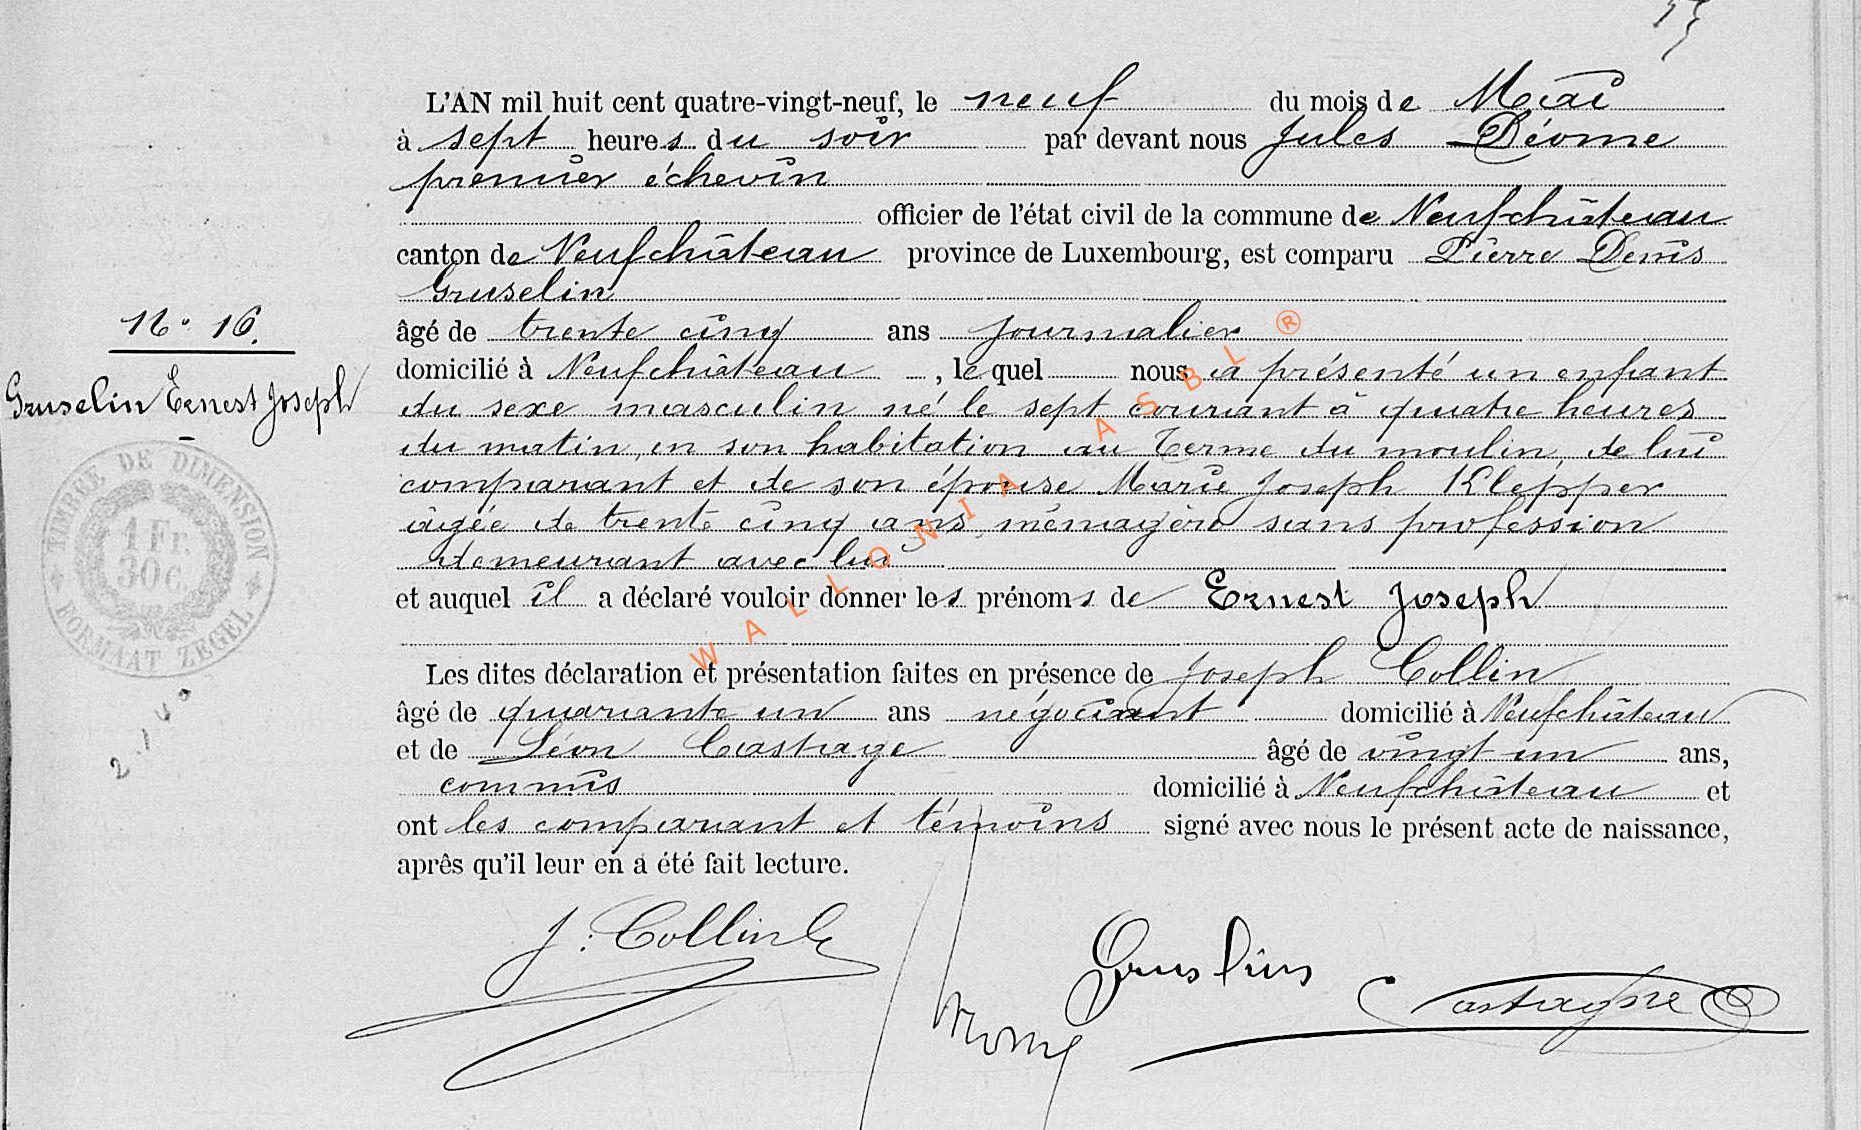 L'AN mil huit cent quatre-vingt-neuf, le neuf du mois de Mai
à sept heures du soir par devant nous Jules Déome
premier échevin
officier de l'état civil de la commune de Neufchâteau
canton de Neufchâteau province de Luxembourg, est comparu Pierre Denis
Gruselin
N° 16.
Gruselin Ernest Joseph
âgé de trente cinq ans journalier
domicilié à Neufchâteau, lequel nous a présenté un enfant
du sexe masculin né le sept courant à quatre heures
du matin, en son habitation au Terme du moulin, de lui
comparant et de son épouse Marie Joseph Klepper
âgée de trente cinq ans, ménagère sans profession
demeurant avec lui
et auquel il a déclaré vouloir donner les prénoms de Ernest Joseph
Les dites déclaration et présentation faites en présence de Joseph Collin
âgé de quarante un ans négociant domicilié à Neufchâteau
et de Léon Castagne âgé de vingt un ans,
commis domicilié à Neufchâteau et
ont les comparant et témoins signé avec nous le présent acte de naissance,
après qu'il leur en a été fait lecture.
J. Collin
Gruslins
Castagne
TIMBRE DE DIMENSION
1 Fr.
30 c.
FORMAAT ZEGEL
WALLONIA ASBL ®